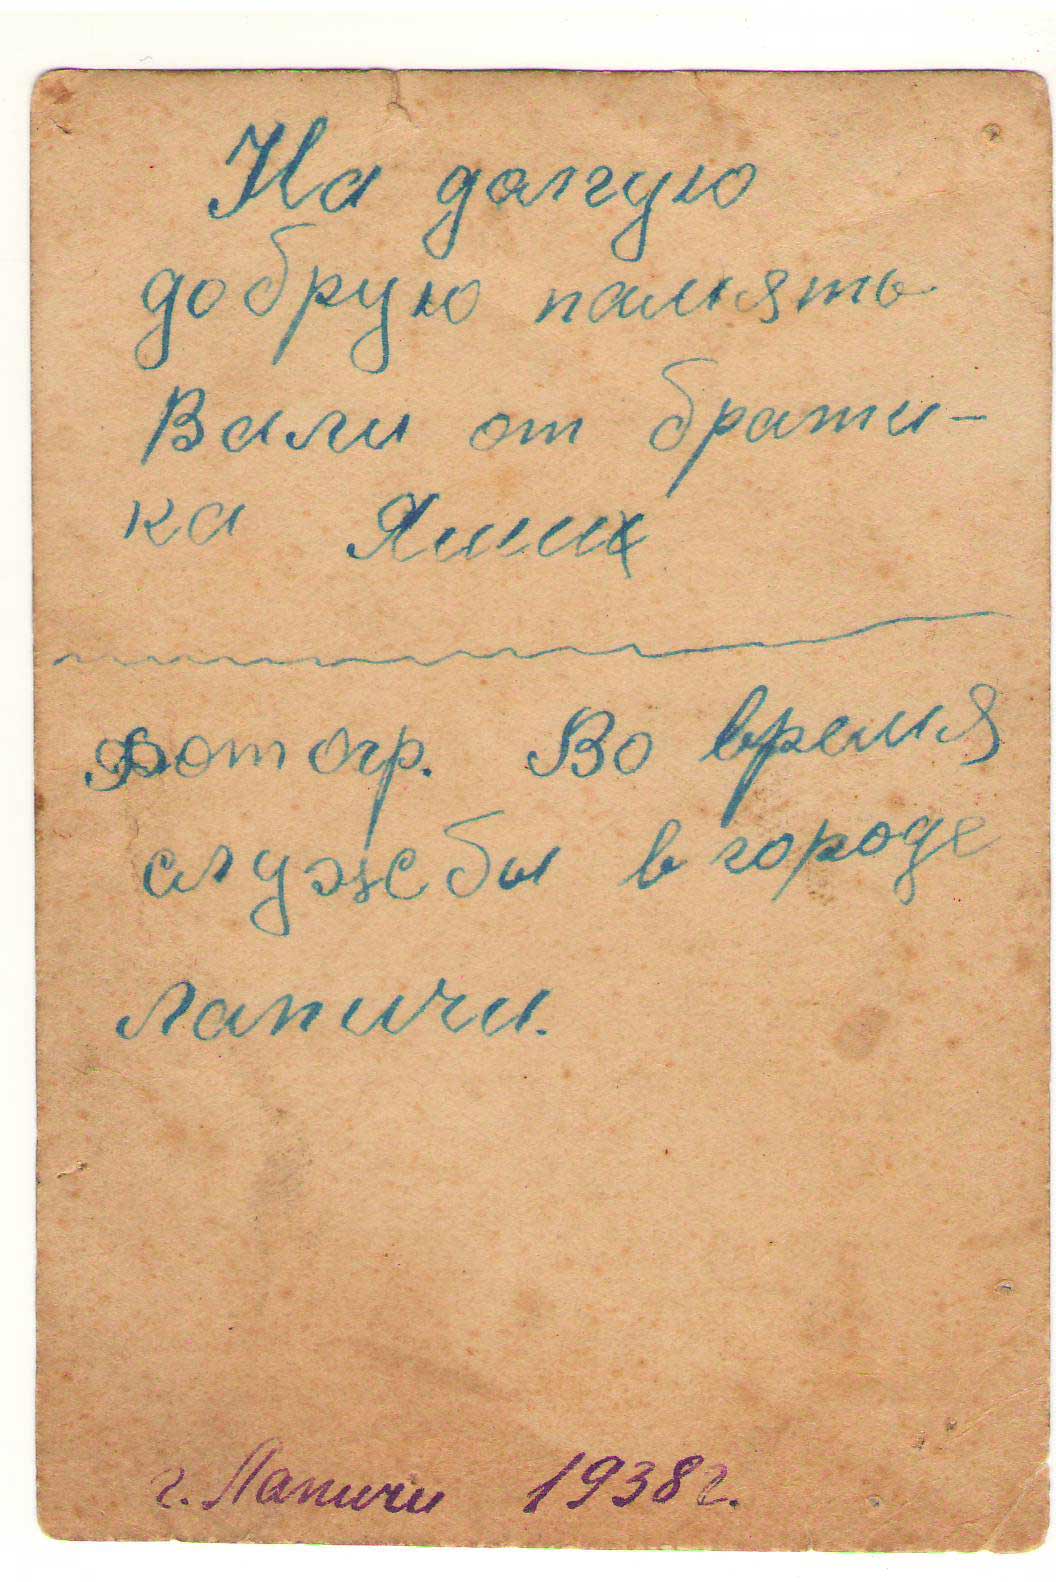 На долгую
добрую память
Вали от брати-
ка Яши
фотогр. Во время
службы в городе
лапичи.
г. Лапичи 1938г.